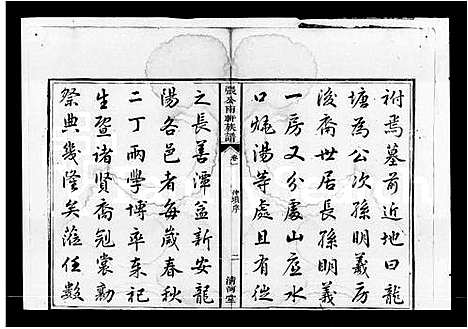 祔焉墓前近地曰龍
塘為公次孫明義房
後裔世居長孫明義
一房又分處山應水
口娓湯等處且有從
張公南軒族譜
卷一
仲塤序
二
清河堂
之長善潭益新安龍
陽各邑者每歲春秋
二丁兩學博率來祀
生暨諸賢裔冠裳勷
祭典幾隆矣蒞任數